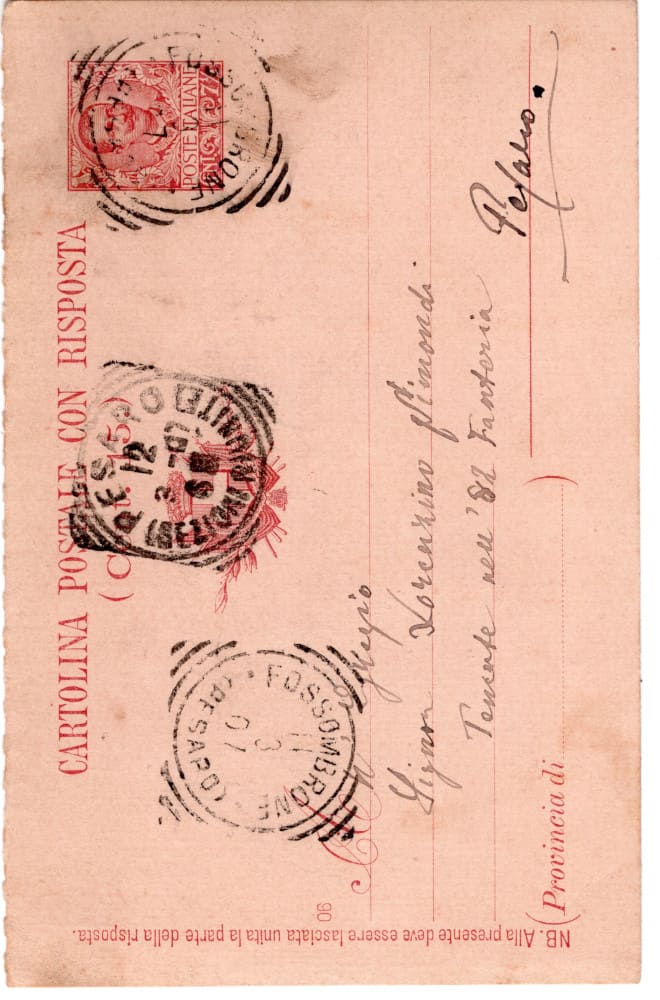 CARTOLINA POSTALE CON RISPOSTA
POSTE ITALIANE
FOSSOMBRONE
PESARO
12
3-07
FOSSOMBRONE
(PESARO)
11
3
07
All'
Signor Lorenzino Simondi
Tenente nell' 82 Fanteria
Pesaro.
(Provincia di
)
NB. Alla presente deve essere lasciata unita la parte della risposta.
06